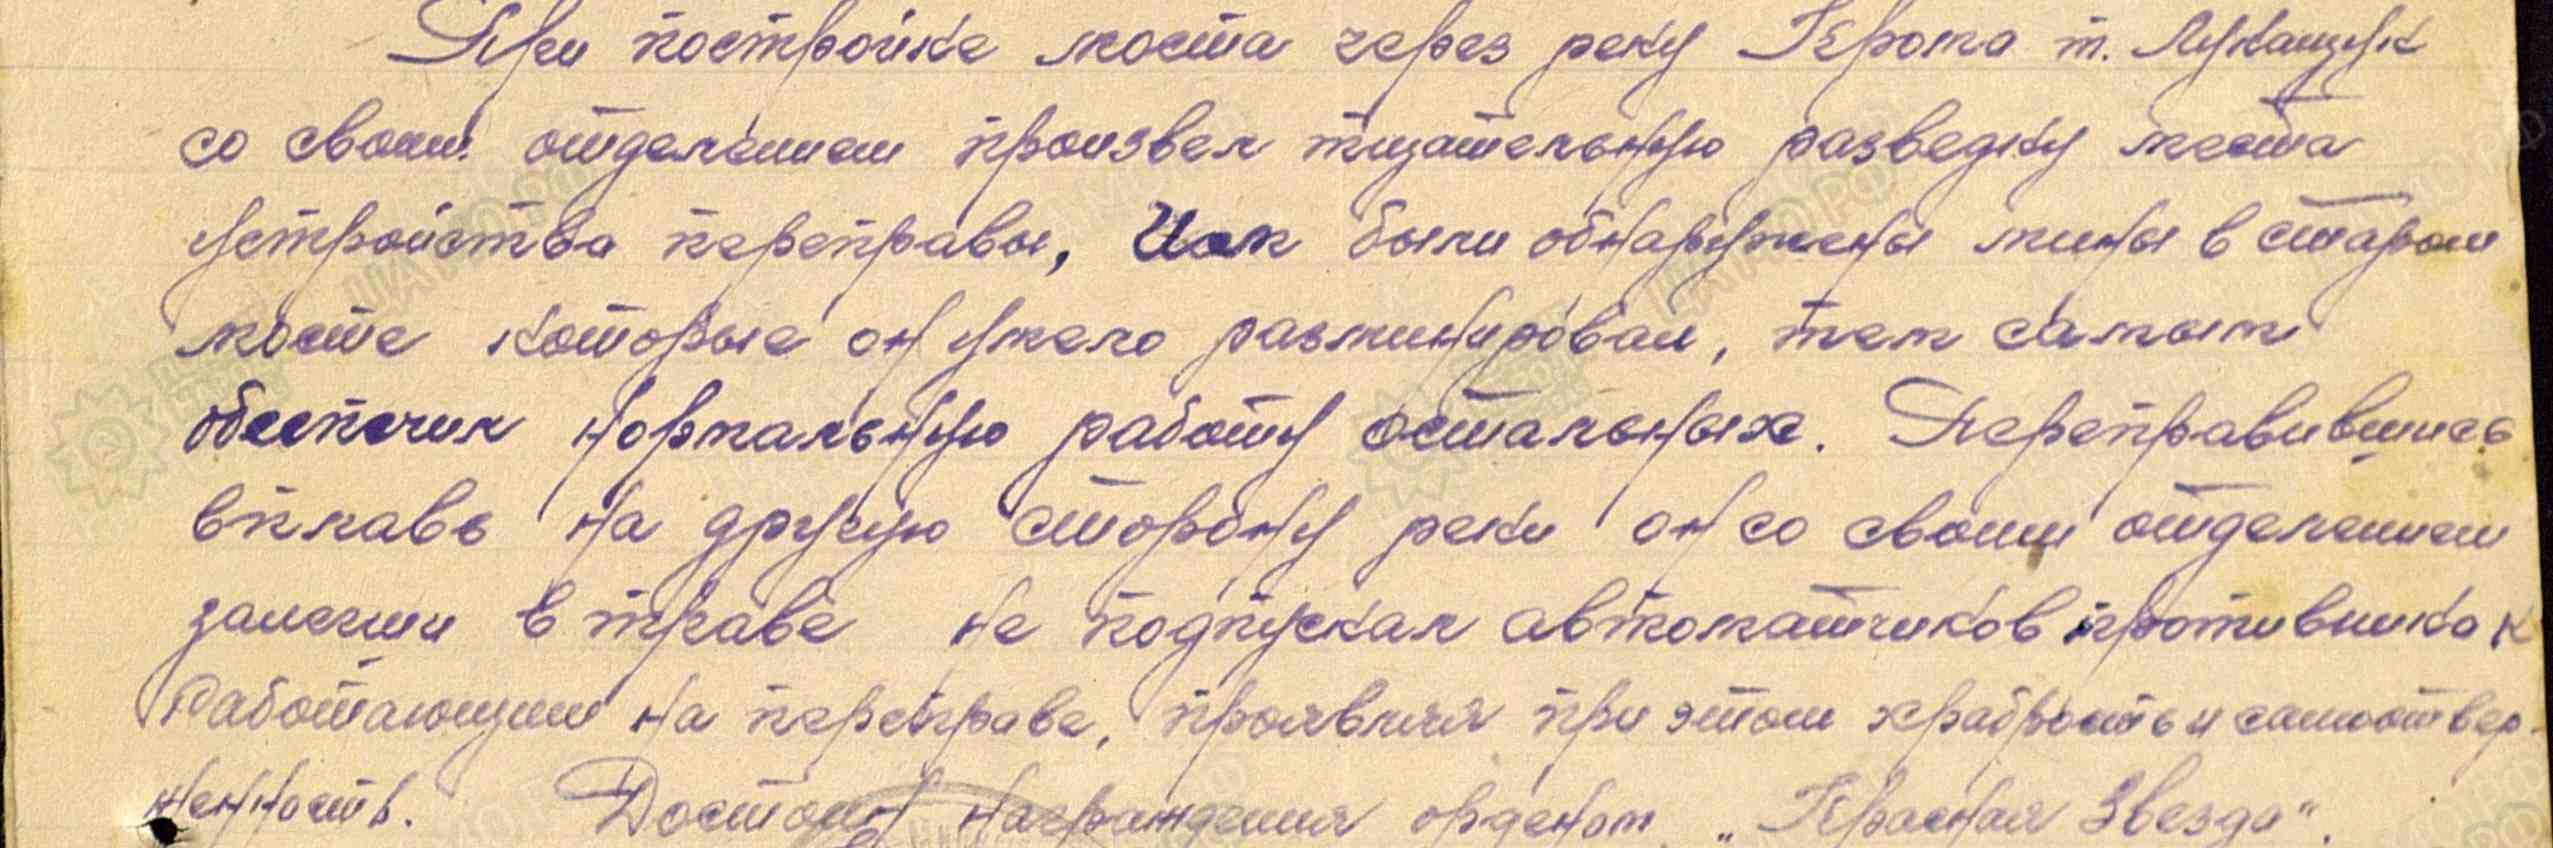 При постройке моста через реку Крома т. Лукащук
со своим отделением произвел тщательную разведку места
устройства переправы, Им были обнаружены мины в старом
мосте которые он умело разминировал, тем самым
обеспечил нормальную работу остальных. Переправившись
вплавь на другую сторону реки он со своим отделением
залегши в траве не подпускал автоматчиков противника к
работающим на переправе, проявляя при этом храбрость и самоотвер-
женность. Достоин награждения орденом „Красная Звезда".